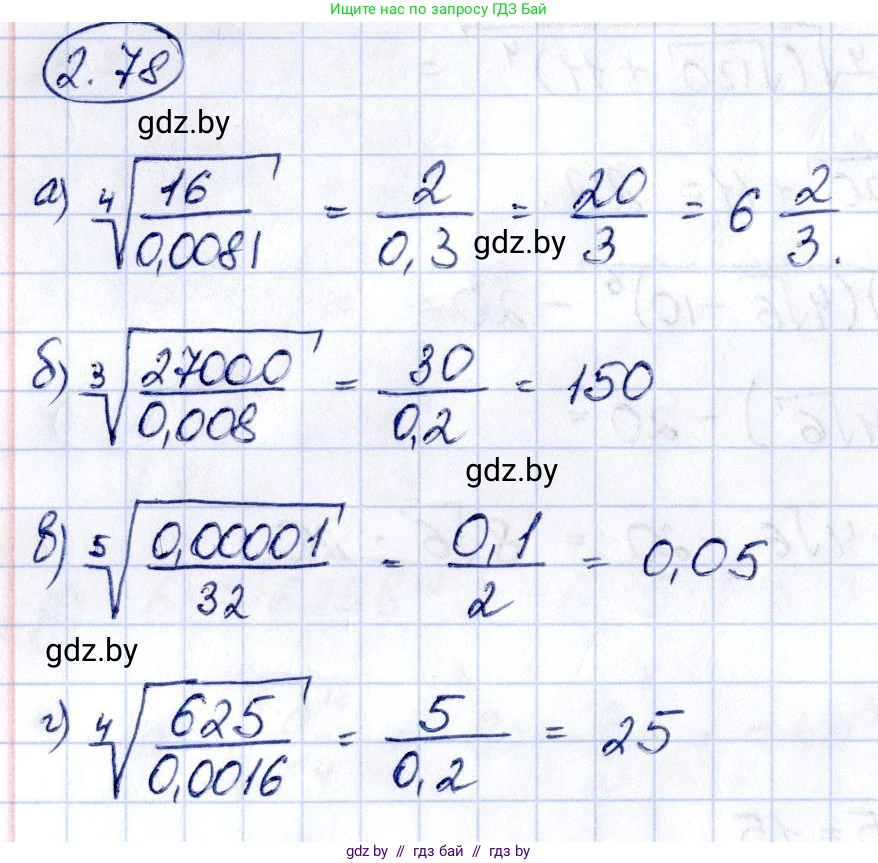 Ищите нас по запросу ГДЗ Бай
2.78
gdz.by
а) ⁴√(16/0,0081) = 2/0,3 = 20/3 = 6 2/3.
gdz.by
б) ³√(27000/0,008) = 30/0,2 = 150
gdz.by
в) ⁵√(0,00001/32) = 0,1/2 = 0,05
gdz.by
г) ⁴√(625/0,0016) = 5/0,2 = 25
gdz.by // гдз бай // gdz by